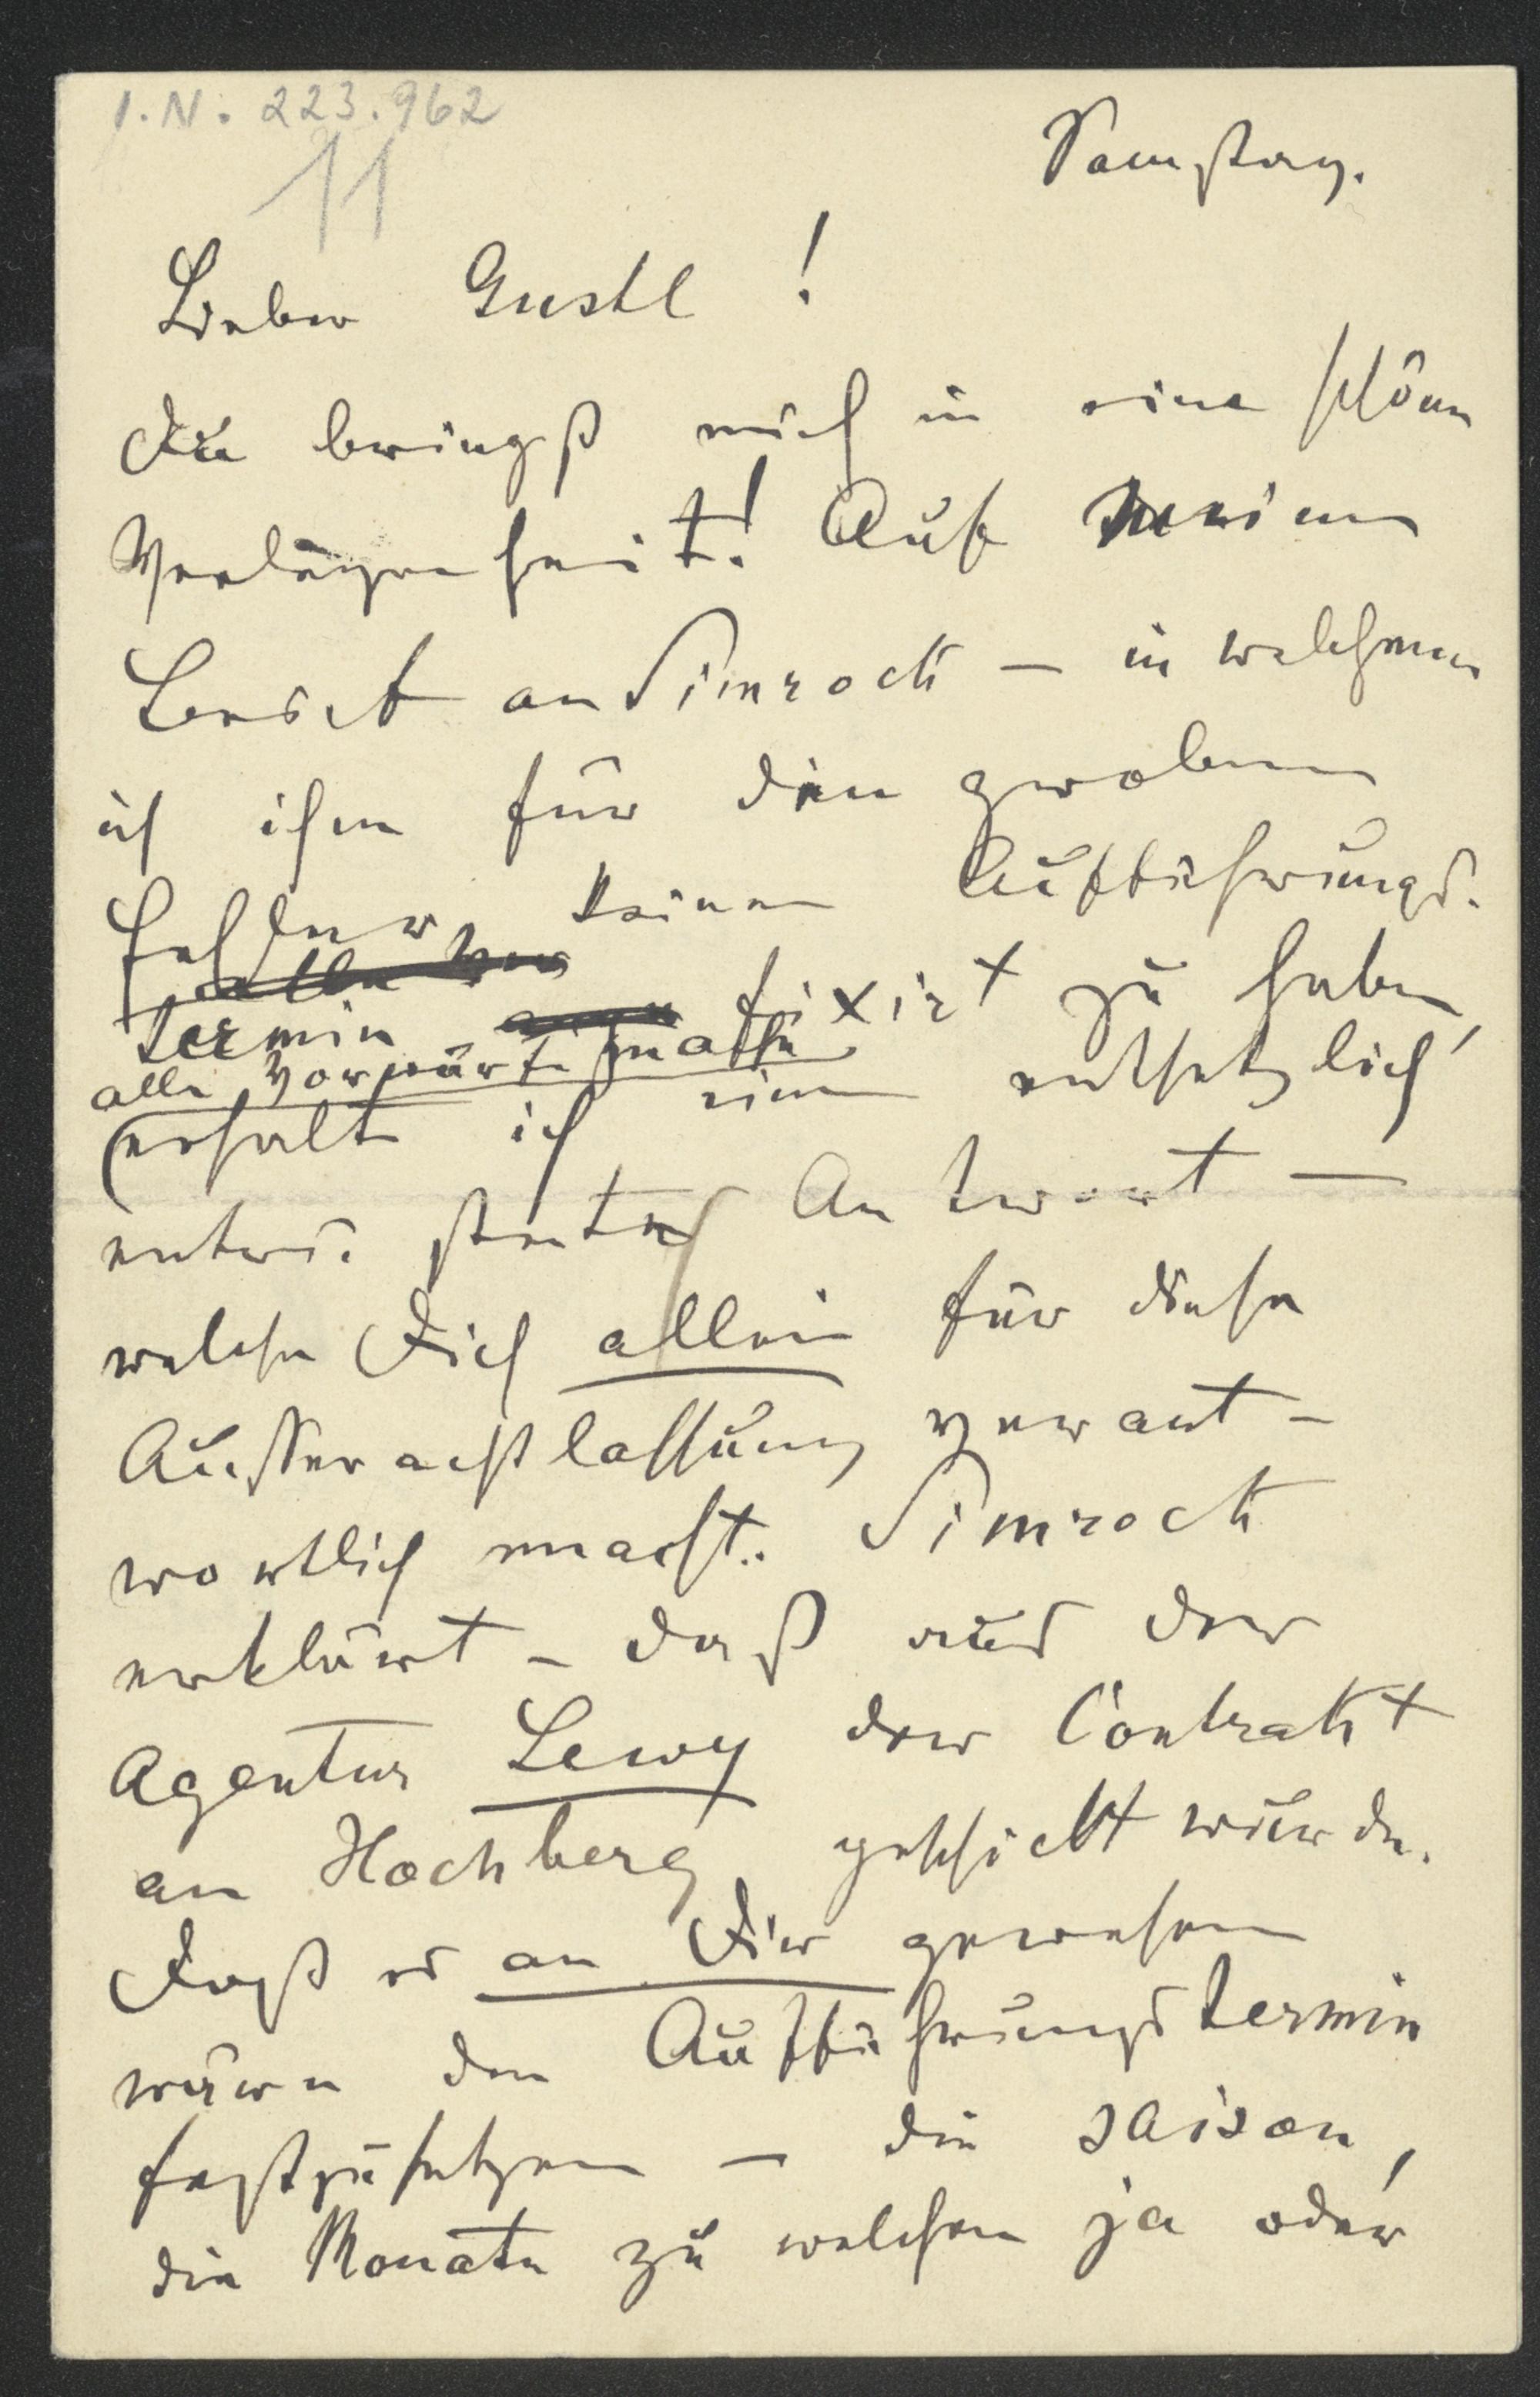 I.N. 223.962
11
Samstag.
Lieber Gustl!
Du bringst mich in eine schöne
Verlegenheit! Auf meinen
Brief an Simrock – in welchem
ich ihm für den groben
Fehler keinen Aufführungs-
termin fixirt zu haben
alle Vorwürfe mache
erhalte ich eine entsetzlich
Antwort –
welche Dich allein für diese
Ausserachtlassung verant-
wortlich macht. Simrock
erklärt – daß aus der
Agentur Lewy der Contrakt
an Hochberg geschickt wurde.
Daß es an Dir gewesen
wäre den Aufführungstermin
festzusetzen – die saison,
die Monate zu welchen ja oder